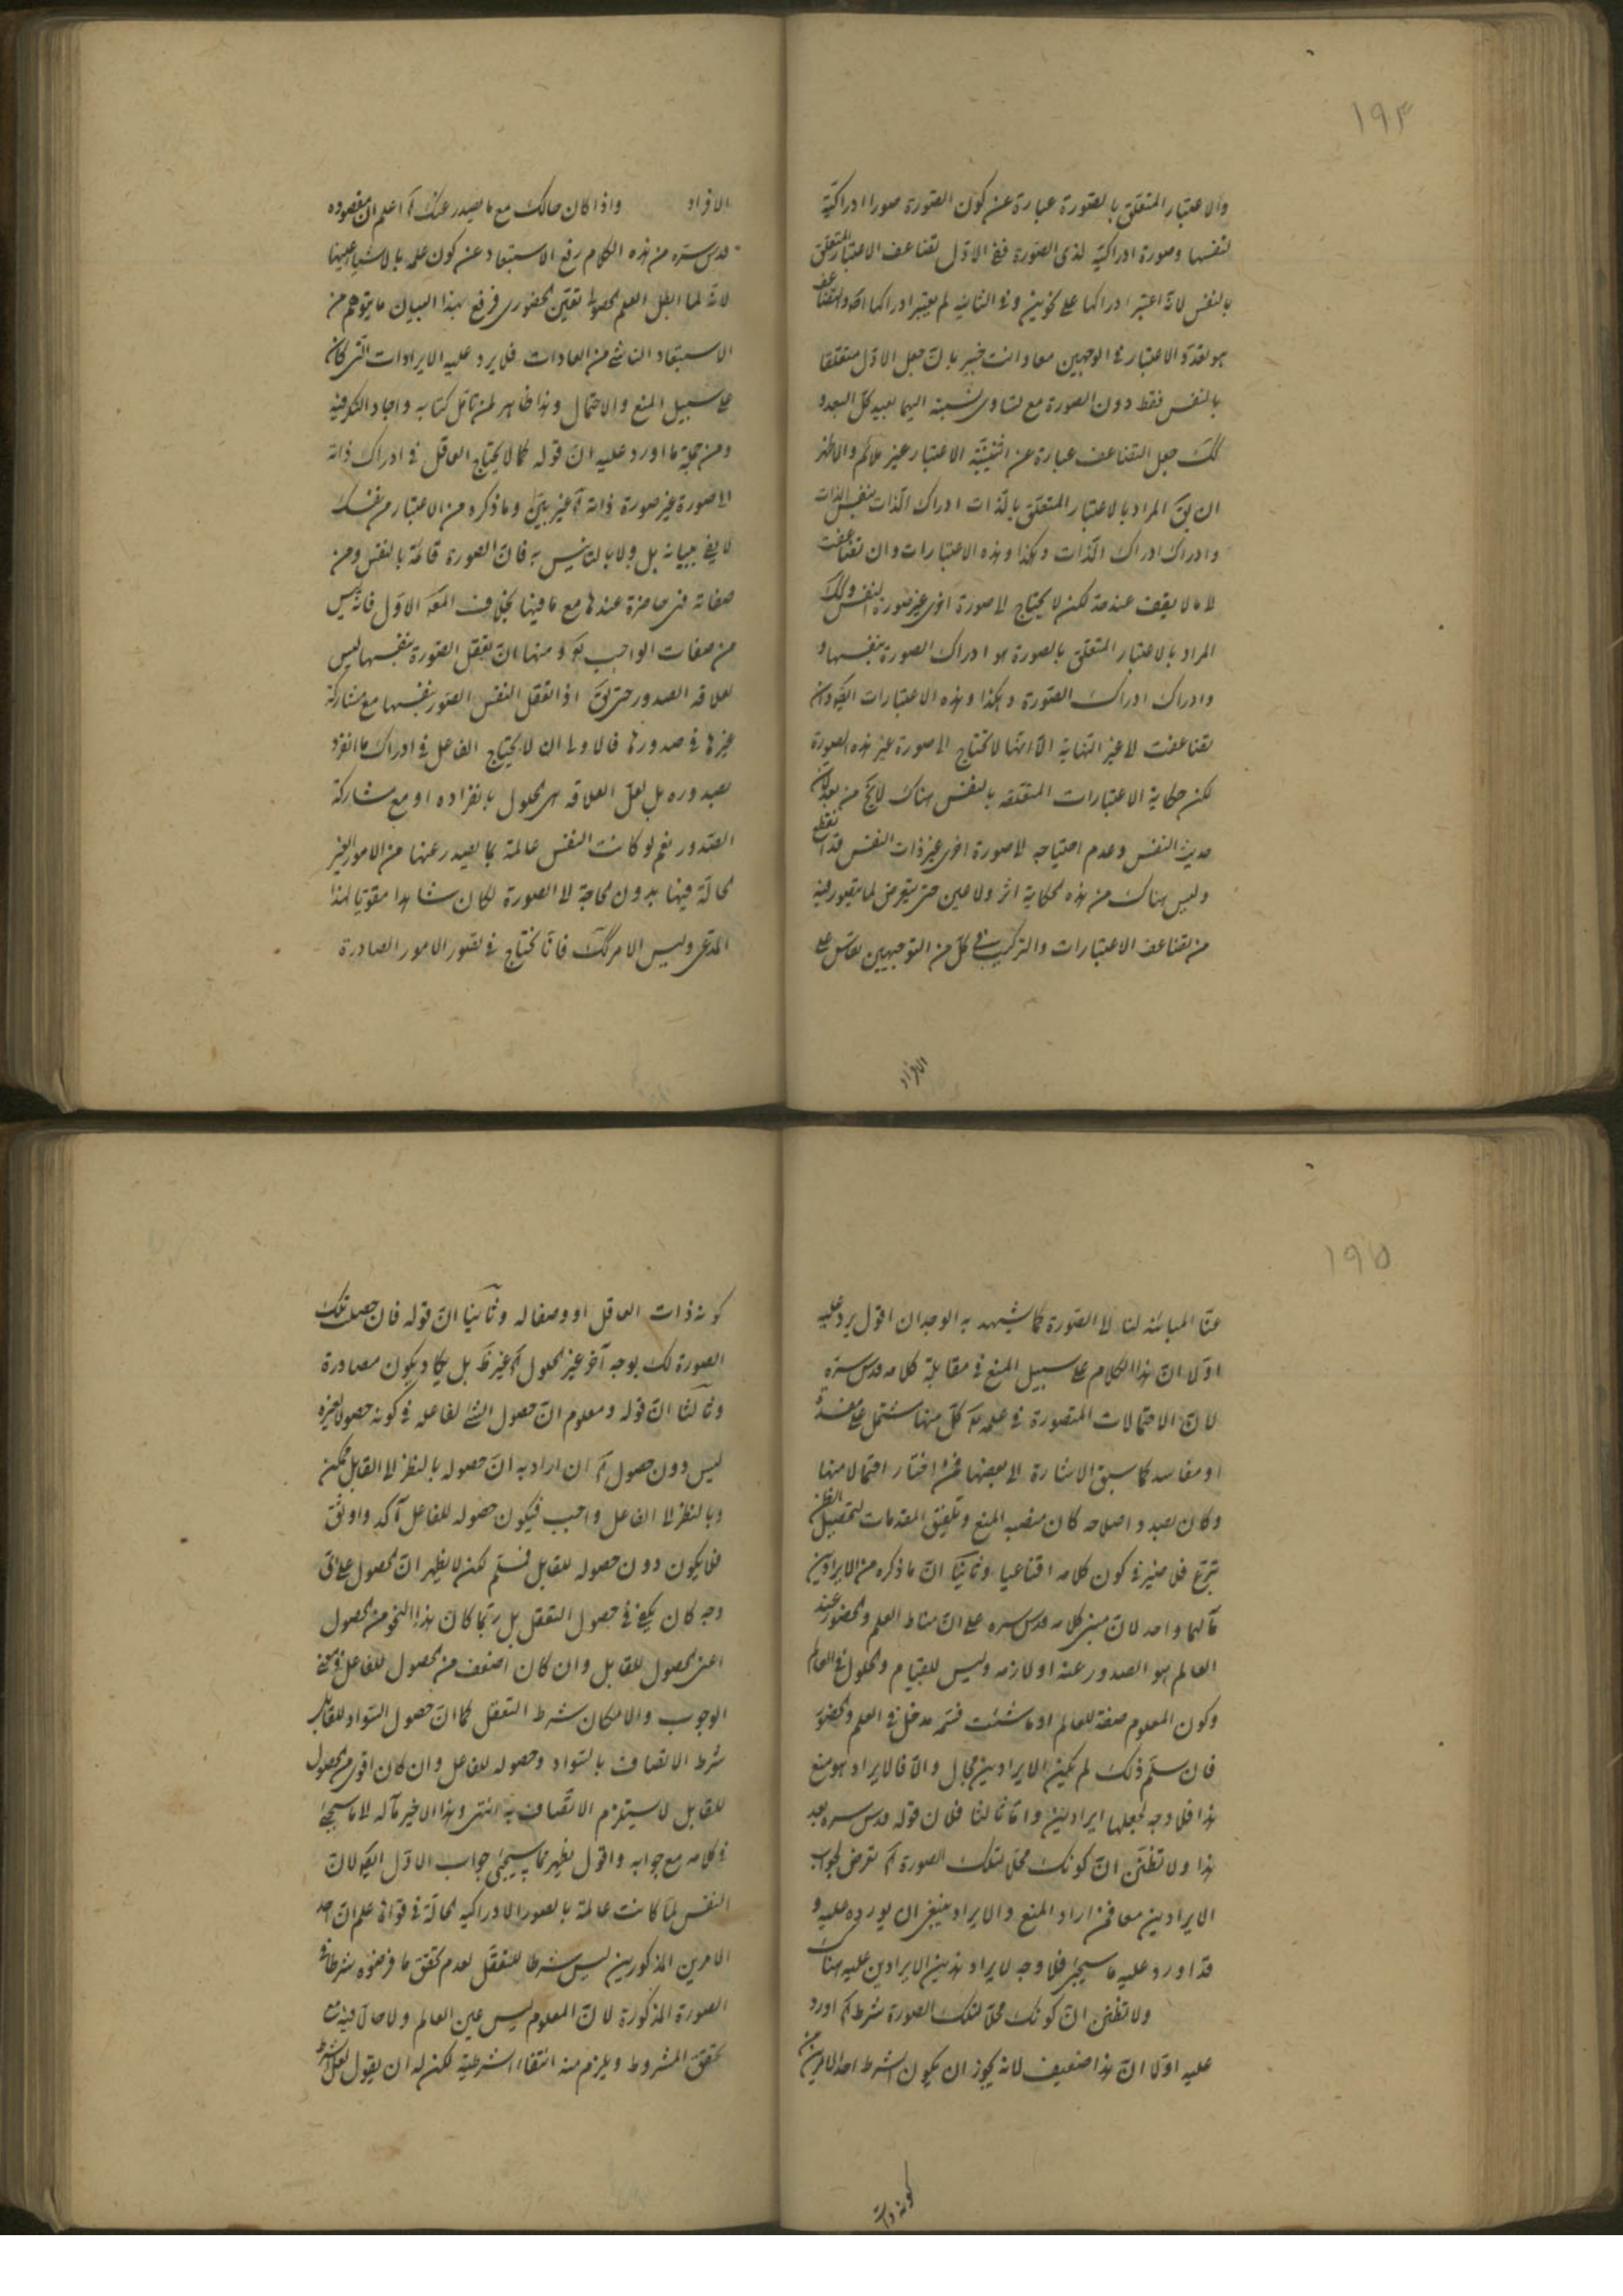 ١٩٤
والاعتبار المتعلق بالصورة عبارة عن كون الصورة صورا ادراكية
لنفسها وصورة ادراكية لذى الصورة ففى الاول تضاعف الاعتبار المتعلق
بالنفس لانه اعتبر ادراكها على نحوين وفى الثانية لم يعتبر ادراكها والتضاعف
هو تعدد الاعتبار فى الوجهين معا وانت خبير بان جعل الاول متعلقا
بالنفس فقط دون الصورة مع تساوى نسبته اليهما بعيد كل البعد و
كك جعل التضاعف عبارة عن اثنينية الاعتبار غير ملائم والاظهر
ان يق المراد بالاعتبار المتعلق بالذات ادراك الذات بنفس الذات
وادراك ادراك الذات وهكذا وهذه الاعتبارات وان تضاعفت
لا ما لا يقف عند حد لكن لا يحتاج الى صورة اخرى غير صورة النفس وكك
المراد بالاعتبار المتعلق بالصورة هو ادراك الصورة بنفسها و
وادراك ادراك الصورة وهكذا وهذه الاعتبارات ايضا وان
تضاعفت لا غير النهاية الا انها لا تحتاج الى صورة غير هذه الصورة
لكن حكاية الاعتبارات المتعلقة بالنفس هناك لا يخ من بعد لان
حديث النفس وعدم احتياجه لا صورة اخرى غير ذات النفس قد انقطع
وليس هناك من هذه الحكاية اثر ولا عين حتى يتعرض لما يتصور فيه
من تضاعف الاعتبارات والتركيب فى كل من التوجيهين على
الافراد
الافراد واذا كان حالك مع ما يصدر عنك آه اعلم ان مقصوده
قدس سره من هذه الكلام رفع الاستبعاد عن كون علمه بالاشياء عينها
لانه لما ابطل العلم الحصولى تعين الحضورى فرفع بهذا البيان ما يتوهم من
الاستبعاد الناشى من العادات فلا يرد عليه الايرادات التى كان
على سبيل المنع والاحتمال وهذا ظاهر لمن تامل كتابه واجاد الفكر فيه
ومن جملة ما اورد عليه ان قوله كما لا يحتاج العاقل فى ادراك ذاته
الى صورة غير صورة ذاته آه غير بين وما ذكره من الاعتبار من نفسك
لا يفى ببيانه بل ولا بالتانيس به فان الصورة قائمة بالنفس ومن
صفاته فهى حاضرة عندها مع ما فيها بخلاف المعه الاول فانه ليس
من صفات الواجب تعه ومنها ان تعقل الصورة بنفسها ليس
لعلاقة الصدور حتى يق اذا تعقل النفس الصور بنفسها مع مشاركة
غيرها فى صدورها فالاولى ان لا يحتاج الفاعل فى ادراك ما انفرد
بصدوره بل لعل العلاقة هى الحلول بانفراده او مع مشاركة
الصدور نعم لو كانت النفس عالمة بما يصدر عنها من الامور الغير
الحالة فيها بدون الحاجة لا الصورة لكان شاهدا مقويا لهذا
المدعى وليس الامر كك فانا نحتاج فى تصور الامور الصادرة
١٩٥
عنا المباينة لنا لا الصورة كما يشهد به الوجدان اقول يرد عليه
اولا ان هذا الكلام على سبيل المنع فى مقابلة كلامه قدس سره
لان الاحتمالات المتصورة فى علمه تعه كل منها مشتمل على مفسدة
او مفاسد كما سبق الاشارة الى بعضها فمن اختار احتمالا منها
وكان بصدد اصلاحه كان منصبه المنع وتلفيق المقدمات لتحصيل الظن
تبرع فلا ضير فى كون كلامه اقناعيا وثانيا ان ما ذكره من الايرادين
مآلهما واحد لان مبنى كلامه قدس سره على ان مناط العلم والحضور عند
العالم هو الصدور عنه او لازمه وليس للقيام والحلول فى العالم
وكون المعلوم صفة للعالم او ما شئت فسمه مدخل فى العلم والحضور
فان سلم ذلك لم يكن الايرادين مجال والا فالايراد هو منع
هذا فلا وجه لجعلها ايرادين واما ثالثا فلان قوله قدس سره بعد
هذا ولا تظنن ان كونك محلا لتلك الصورة آه تعرض لجواب
الايرادين معا فمن اراد المنع والايراد ينبغى ان يورده عليه و
قد اورد عليه ما سيجئ فلا وجه لايراد هذين الايرادين عليه هناك
ولا تظنن ان كونك محلا لتلك الصورة شرط آه اورد
عليه اولا ان هذا ضعيف لانه يجوز ان يكون الشرط احد الامرين من
كونه ذات
كونه ذات العاقل او وصفا له وثانيا ان قوله فان حصلت تلك
الصورة لك بوجه آخر غير الحلول آه غير ظ بل يكاد يكون مصادرة
وثالثا ان قوله ومعلوم ان حصول الشئ لفاعله فى كونه حصولا لغيره
ليس دون حصول آه ان اراد به ان حصوله بالنظر لا القابل ممكن
وبالنظر لا الفاعل واجب فيكون حصوله للفاعل آكد واوثق
فلا يكون دون حصوله للقابل فسلم لكن لا يظهر ان الحصول على اى
وجه كان يكفى فى حصول التعقل بل ربما كان هذا النحو من الحصول
اعنى الحصول للقابل وان كان اضعف من الحصول للفاعل فى معنى
الوجوب والامكان شرط التعقل كما ان حصول السواد للقابل
شرط الاتصاف بالسواد وحصوله للفاعل وان كان اقوى من الحصول
للقابل لا يستلزم الاتصاف به انتهى وهذا الاخير مآله لا ما سيجئ
فى كلامه مع جوابه واقول يظهر مما سيجئ جواب الاول ايضا لان
النفس لما كانت عالمة بالصور الادراكية الحالة فى قواه علم ان احد
الامرين المذكورين ليس شرطا للتعقل لعدم تحقق ما فرضوه شرطا فى
الصورة المذكورة لان المعلوم ليس عين العالم ولا حالا فيه مع
تحقق المشروط ويلزم منه انتفاء الشرطية لكن له ان يقول لعل الشرط